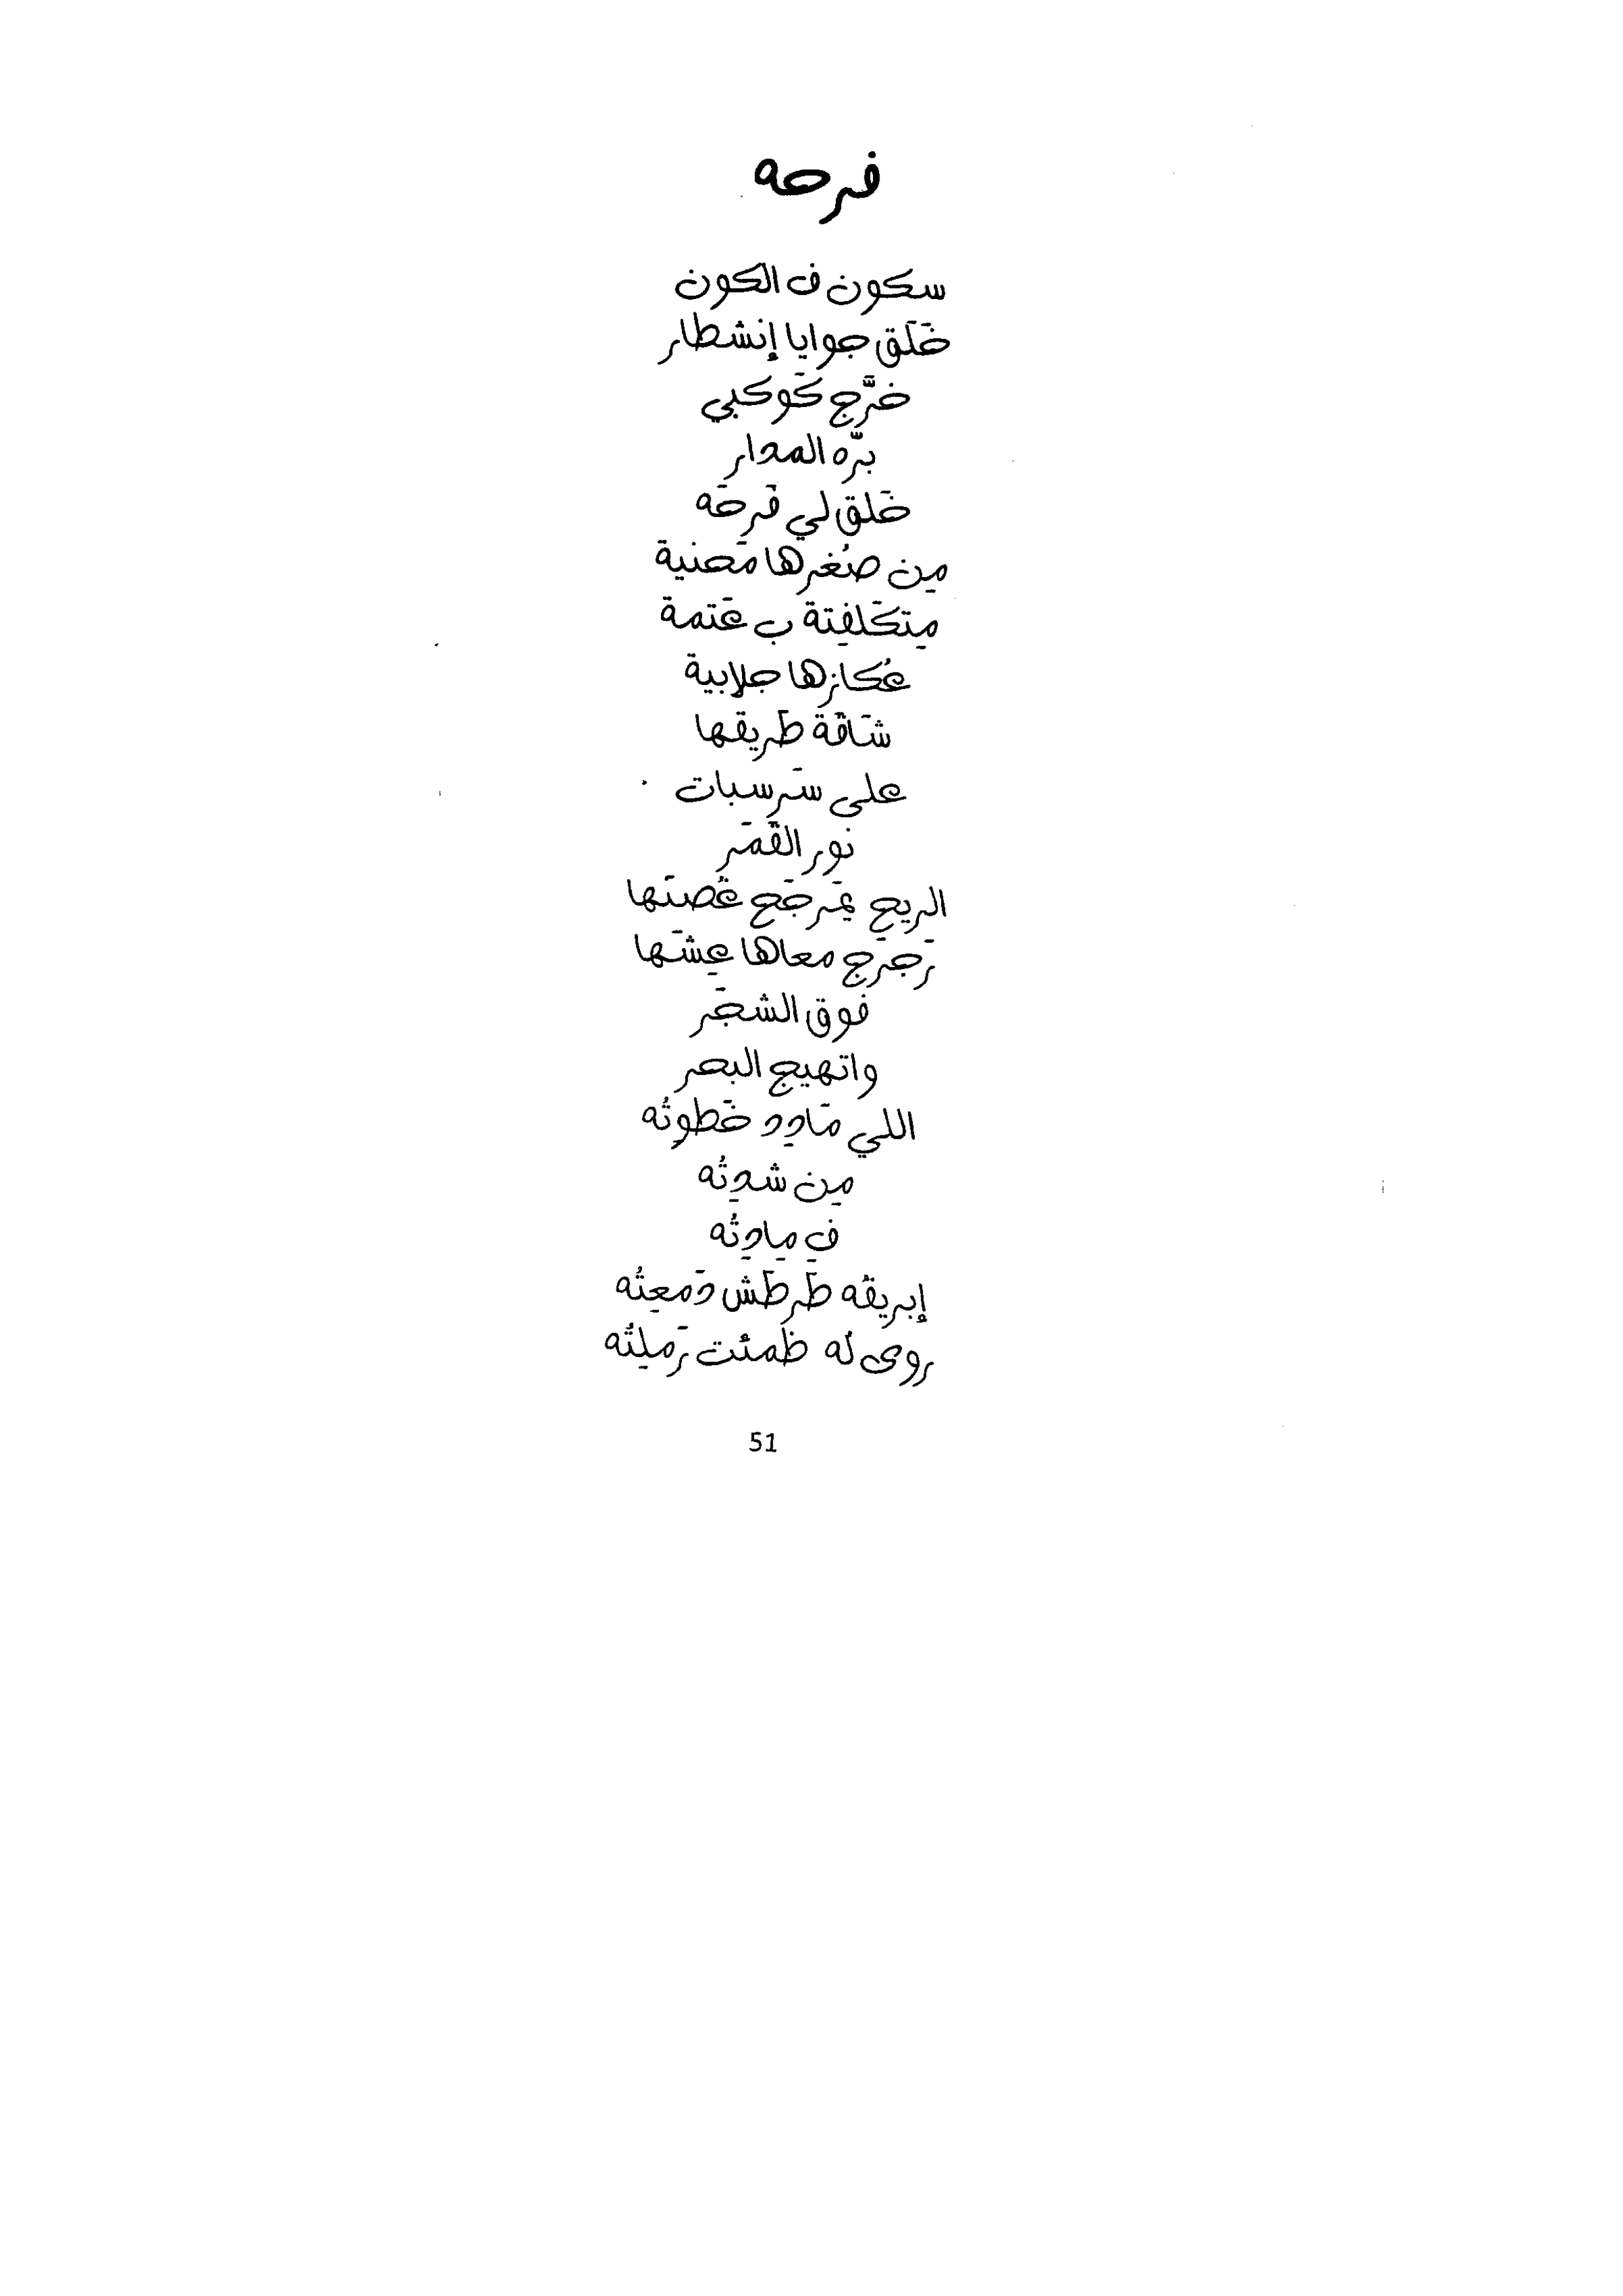 فرحه
سكون ف الكون
خَلَق جوايا إنشطار
خرَّج كَوكبي
برَّه المدار
خَلق لي فَرحَه
مِن صُغرها مَحنية
مِتكَلفِتة ب عَتمة
عُكازها جلابية
شَاقَة طَريقها
على سَرسبات
نور القَمَر
الريح يمَرجَح غُصنَها
تَرجرَج معاها عِشَها
فوق الشجَر
واتهيج البحر
اللي مَادِد خَطوِتُه
مِن شدِتُه
فِ مِادِتُه
إبريقُه طَرطَش دَمعِتُه
روى لُه ظَمئت رَملِتُه
51